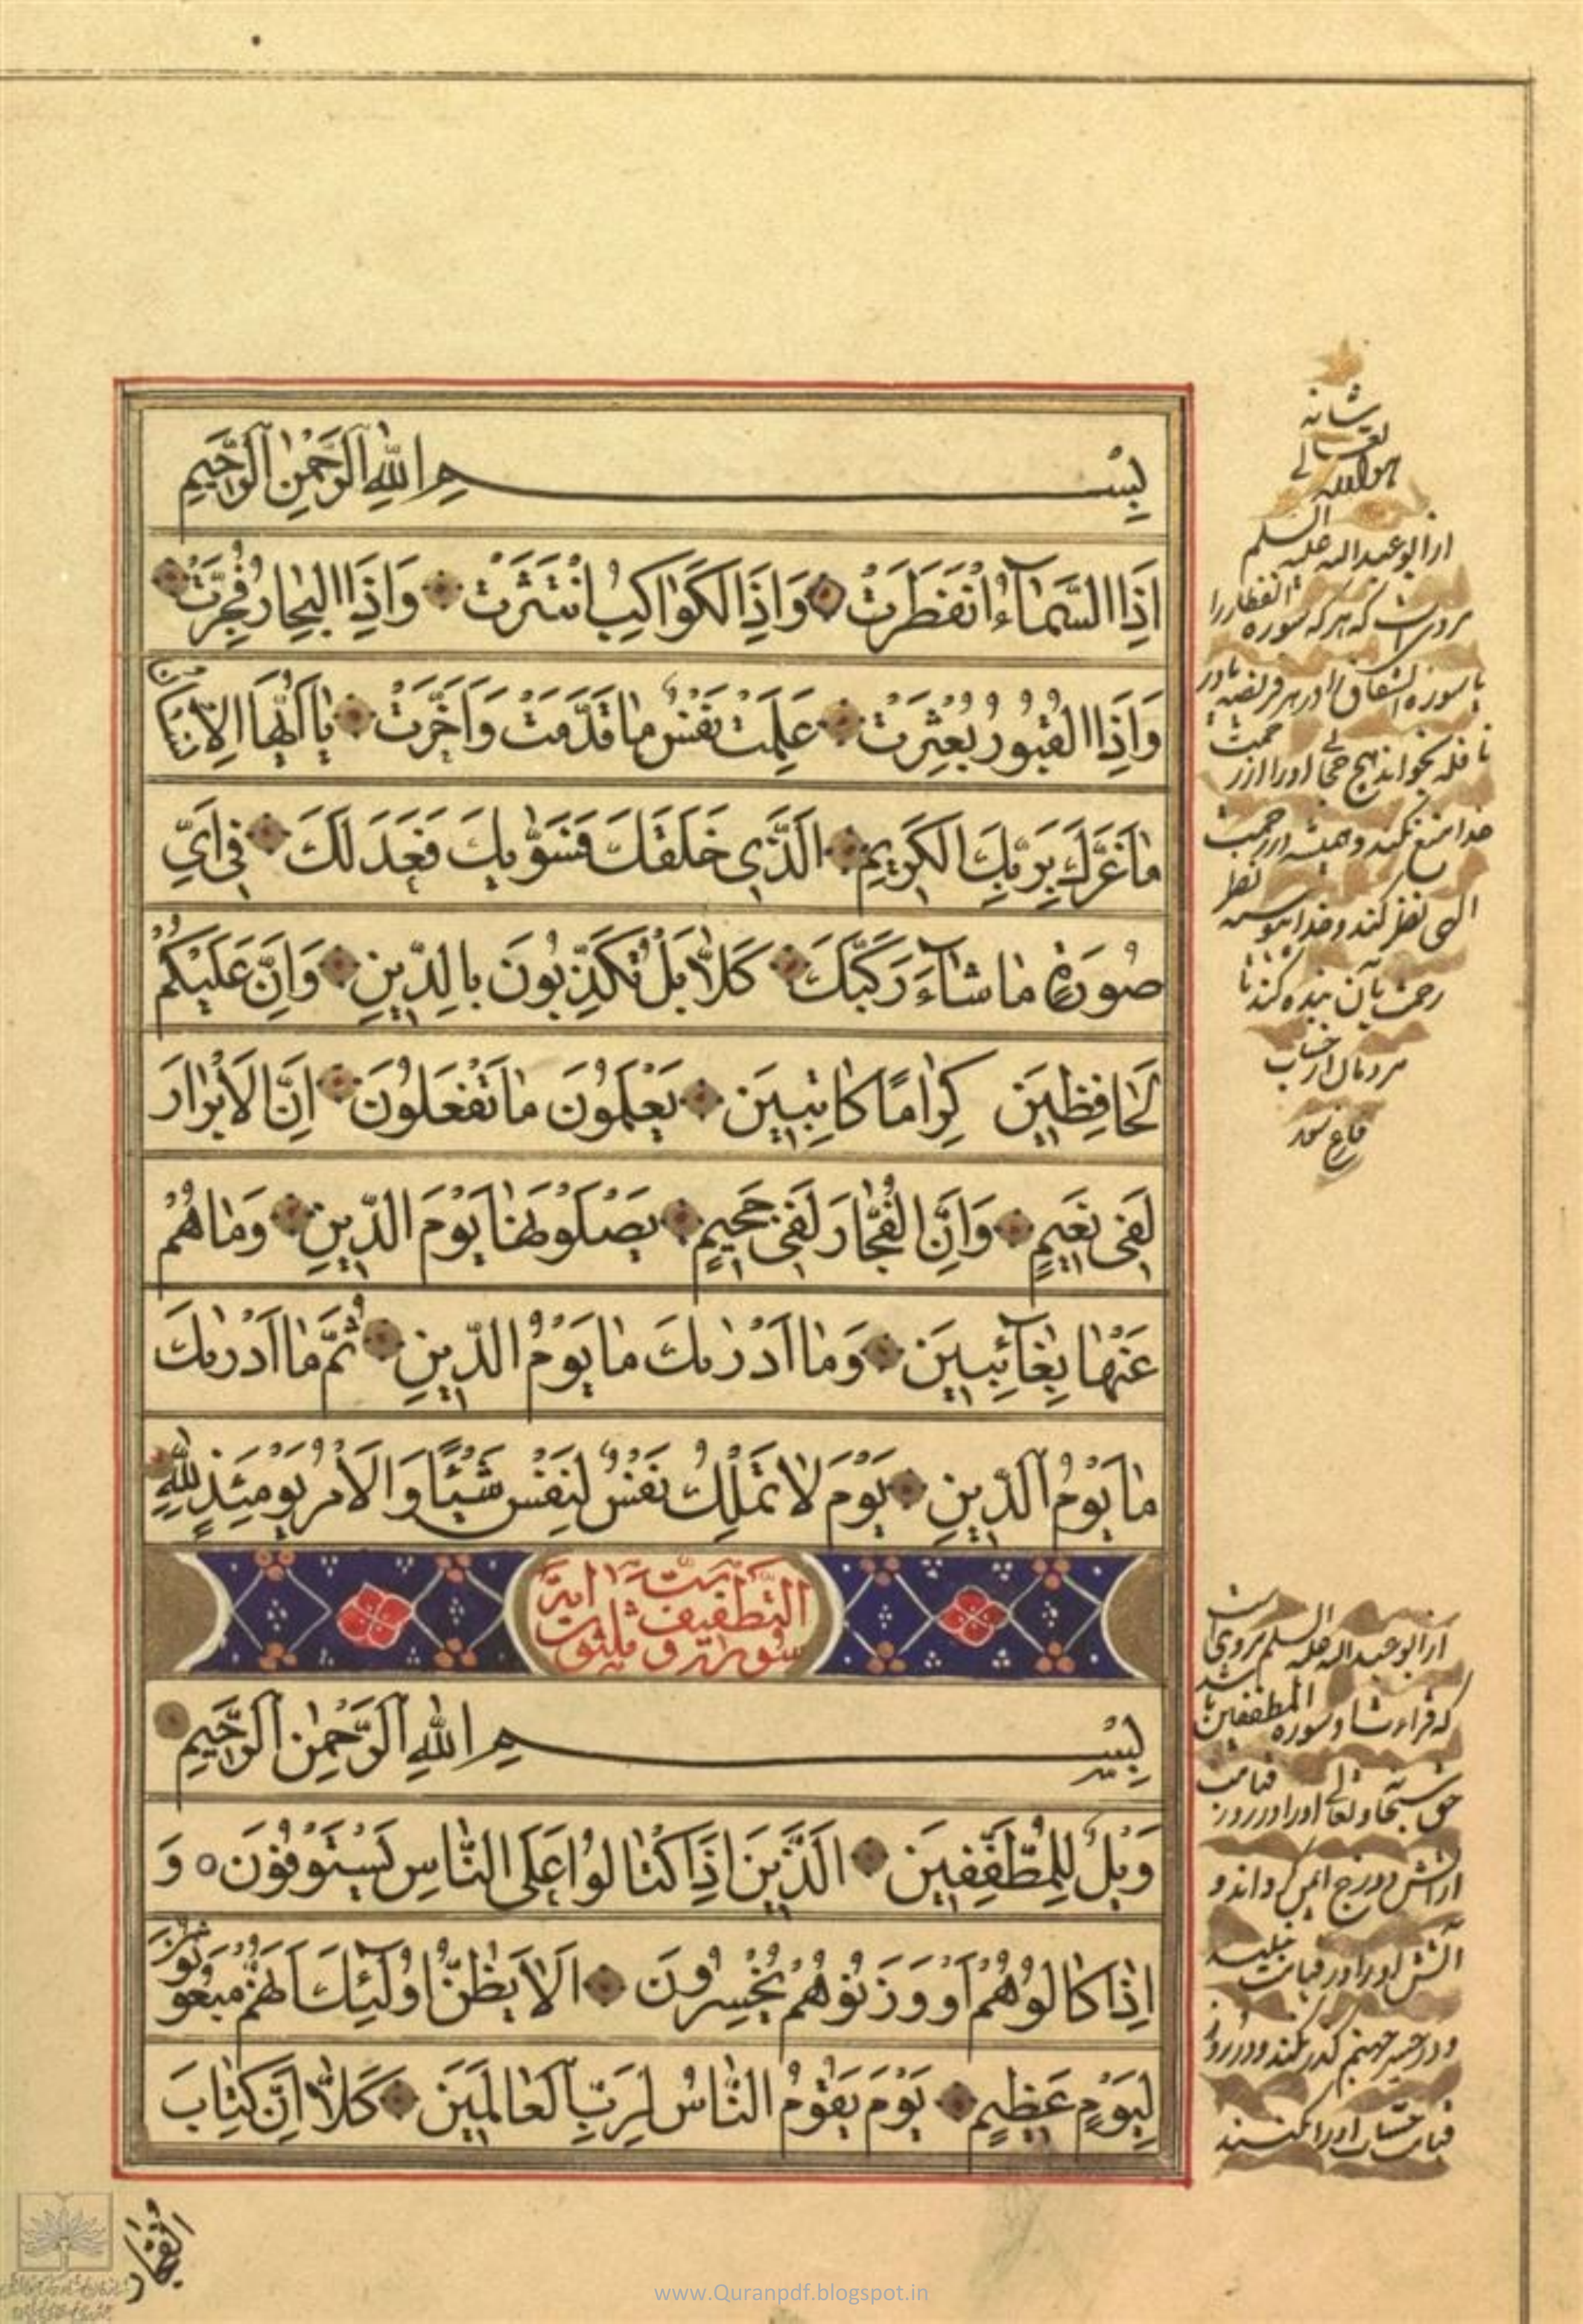 بِسْمِ اللهِ الرَّحْمٰنِ الرَّحِيمِ
اِذَا السَّمَآءُ انْفَطَرَتْ وَاِذَا الْكَوَاكِبُ انْتَثَرَتْ وَاِذَا الْبِحَارُ فُجِّرَتْ
وَاِذَا الْقُبُورُ بُعْثِرَتْ عَلِمَتْ نَفْسٌ مَا قَدَّمَتْ وَاَخَّرَتْ يَا اَيُّهَا الْاِنْسَانُ
مَا غَرَّكَ بِرَبِّكَ الْكَرِيمِ الَّذِي خَلَقَكَ فَسَوّٰيكَ فَعَدَلَكَ فِي اَيِّ
صُورَةٍ مَا شَآءَ رَكَّبَكَ كَلَّا بَلْ تُكَذِّبُونَ بِالدِّينِ وَاِنَّ عَلَيْكُمْ
لَحَافِظِينَ كِرَامًا كَاتِبِينَ يَعْلَمُونَ مَا تَفْعَلُونَ اِنَّ الْاَبْرَارَ
لَفِي نَعِيمٍ وَاِنَّ الْفُجَّارَ لَفِي جَحِيمٍ يَصْلَوْنَهَا يَوْمَ الدِّينِ وَمَا هُمْ
عَنْهَا بِغَآئِبِينَ وَمَا اَدْرٰيكَ مَا يَوْمُ الدِّينِ ثُمَّ مَا اَدْرٰيكَ
مَا يَوْمُ الدِّينِ يَوْمَ لَا تَمْلِكُ نَفْسٌ لِنَفْسٍ شَيْئًا وَالْاَمْرُ يَوْمَئِذٍ لِلّٰهِ
سورة التطفيف ست و ثلثون اية
بِسْمِ اللهِ الرَّحْمٰنِ الرَّحِيمِ
وَيْلٌ لِلْمُطَفِّفِينَ الَّذِينَ اِذَا اكْتَالُوا عَلَى النَّاسِ يَسْتَوْفُونَ وَ
اِذَا كَالُوهُمْ اَوْ وَزَنُوهُمْ يُخْسِرُونَ اَلَا يَظُنُّ اُولٰئِكَ اَنَّهُمْ مَبْعُوثُونَ
لِيَوْمٍ عَظِيمٍ يَوْمَ يَقُومُ النَّاسُ لِرَبِّ الْعَالَمِينَ كَلَّا اِنَّ كِتَابَ
الْفُجَّارِ
هو الله
تعالى
شانه
از ابو عبد الله عليه السلم
مرويست كه هر كه سوره انفطار را
با سوره انشقاق در هر فريضه يا در
نافله بخواند هيچ حجابى او را از رحمت
خدا منع نكند و هميشه از رحمت
الهى نظر كند و خدا نظر
رحمت بآن بنده كند تا
مردمان از حساب
فارغ شود
از ابو عبد الله عليه السلم مرويست
كه قراءت او سوره المطففين باشد
حق سبحانه و تعالى او را در روز قيامت
از آتش دوزخ ايمن گرداند و
آتش او را در قيامت نبيند
و در جسر جهنم گذر نكند و در روز
قيامت حساب او را نكنند
www.Quranpdf.blogspot.in